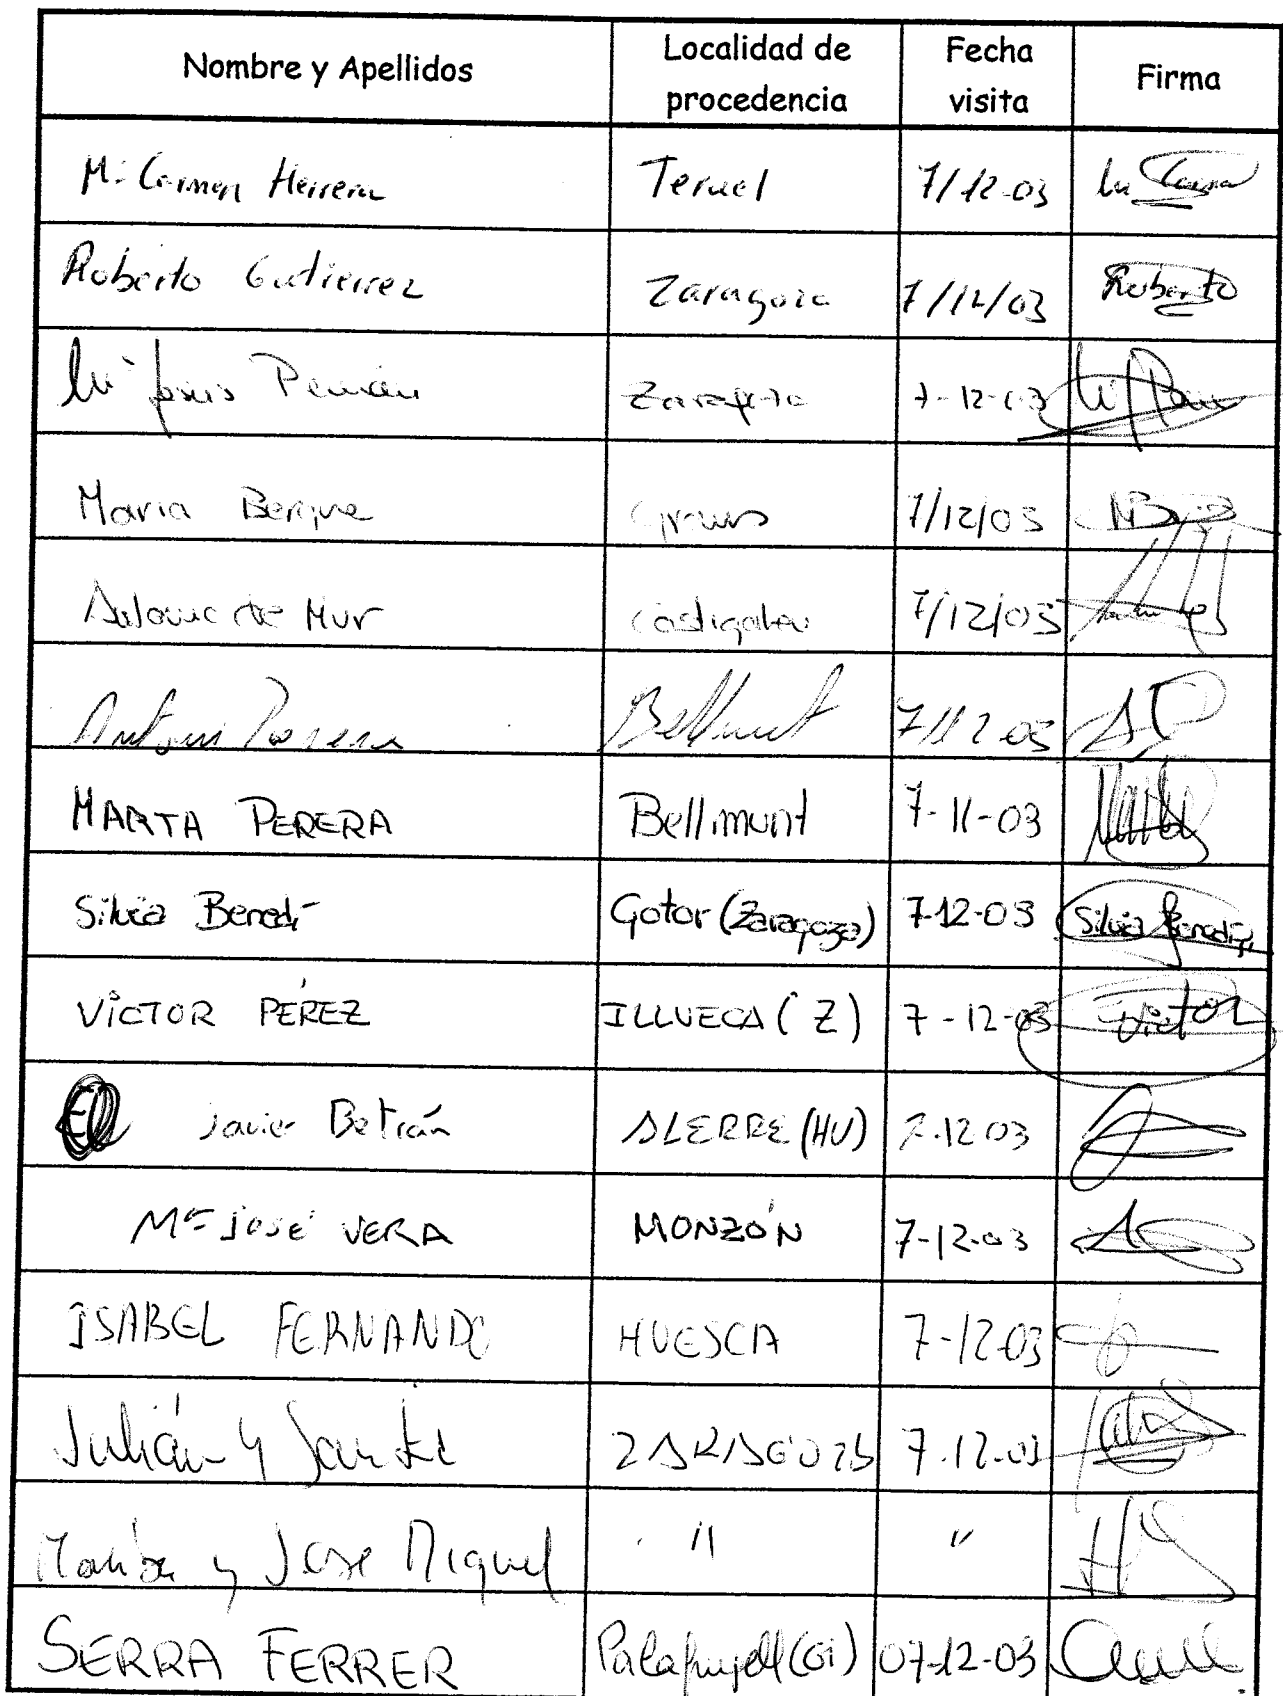 Nombre y Apellidos Localidad de procedencia Fecha visita Firma
Mª Carmen Herrera Teruel 7/12-03
Roberto Gutierrez Zaragoza 7/12/03 Roberto
Mª Jesús Pemán Zaragoza 7-12-03
Maria Bergua Graus 7/12/03
de Mur Castigaleu 7/12/03
Bellmunt 7/12-03
MARTA PERERA Bellmunt 7-11-03
Silvia Benedí Gotor (Zaragoza) 7-12-03 Silvia Benedí
VICTOR PÉREZ ILLUECA (Z) 7-12-03 Victor
Javier Betrán ALERRE (HU) 7.12 03
Mª José VERA MONZÓN 7-12-03
ISABEL FERNANDO HUESCA 7-12-03
Julián y ZARAGOZA 7.12.03
y Jose Miguel " "
SERRA FERRER Palafrugell (Gi) 07-12-03